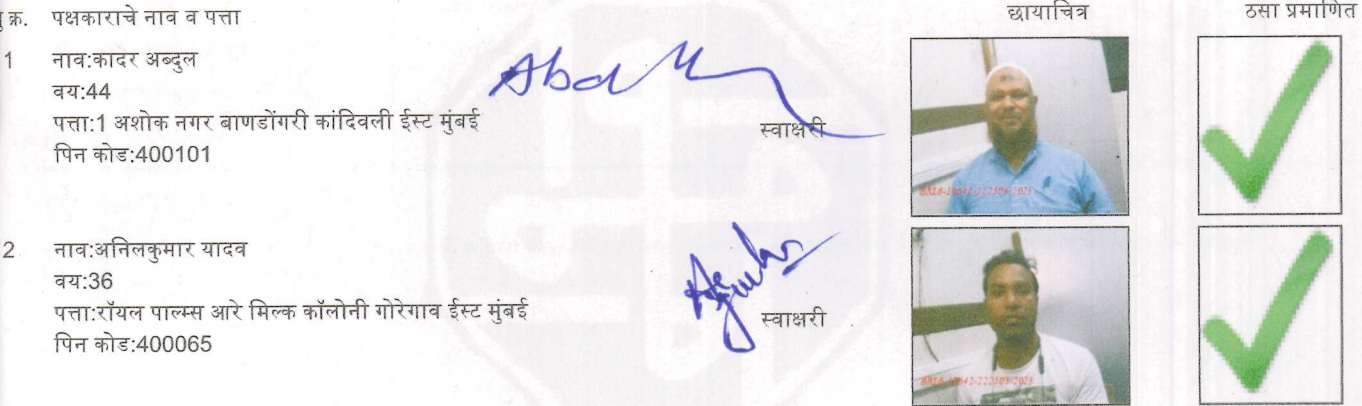 क्र. पक्षकाराचे नाव व पत्ता छायाचित्र ठसा प्रमाणित
1 नाव:कादर अब्दुल
वय:44
पत्ता:1 अशोक नगर बाणडोंगरी कांदिवली ईस्ट मुंबई
पिन कोड:400101
स्वाक्षरी
2 नाव:अनिलकुमार यादव
वय:36
पत्ता:रॉयल पाल्म्स आरे मिल्क कॉलोनी गोरेगाव ईस्ट मुंबई
पिन कोड:400065
स्वाक्षरी